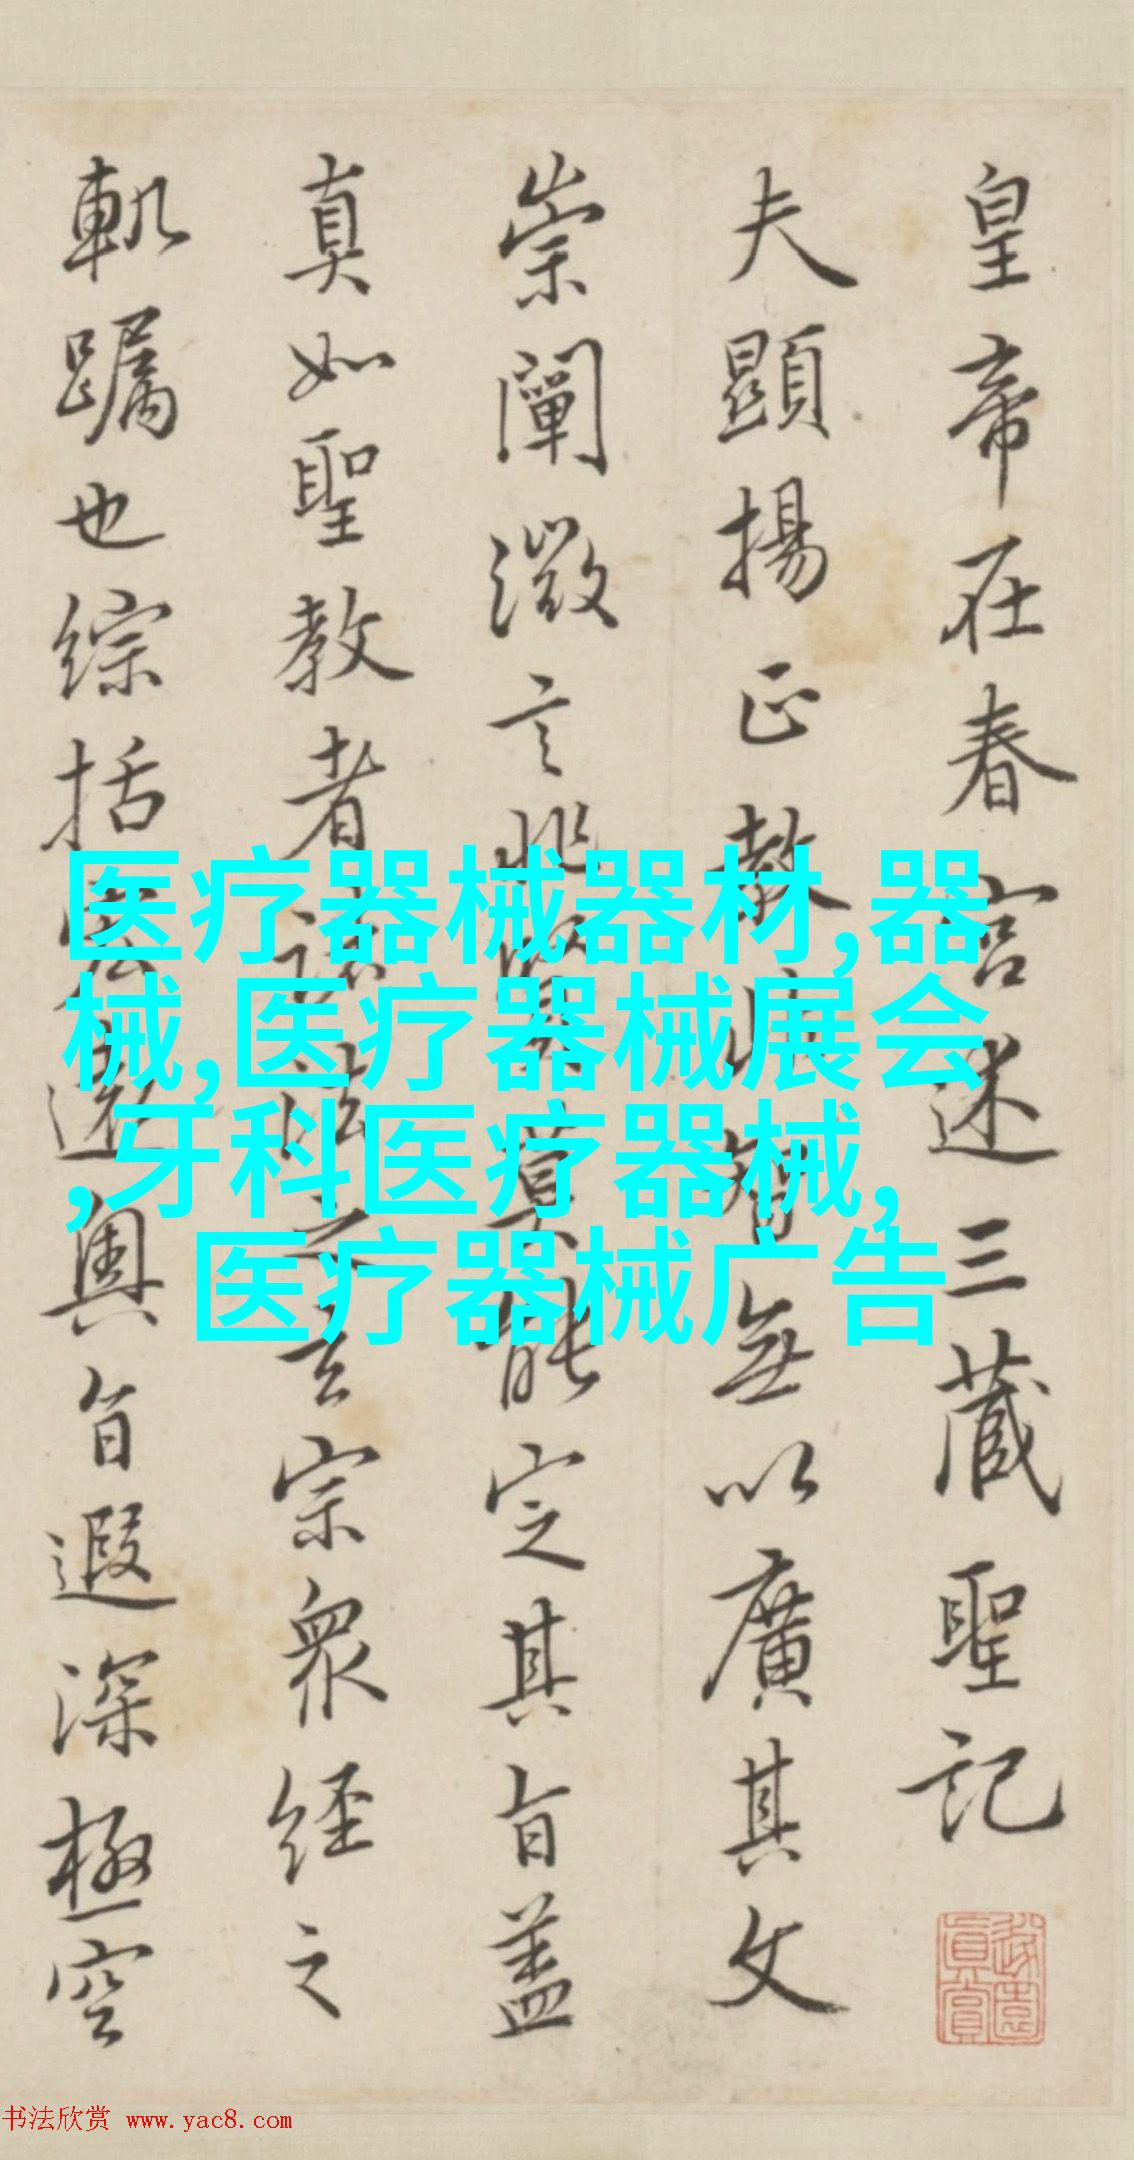 皇帝在春宮述三藏聖記
夫顯揚正教非智無以廣其文
崇闡微言非賢莫能定其旨蓋
真如聖教者諸法之玄宗衆經之
軌躅也綜括宏遠奧旨遐深極空
医疗器械器材,器
械,医疗器械展会
,牙科医疗器械,
医疗器械广告
书法欣赏 www.yac8.com